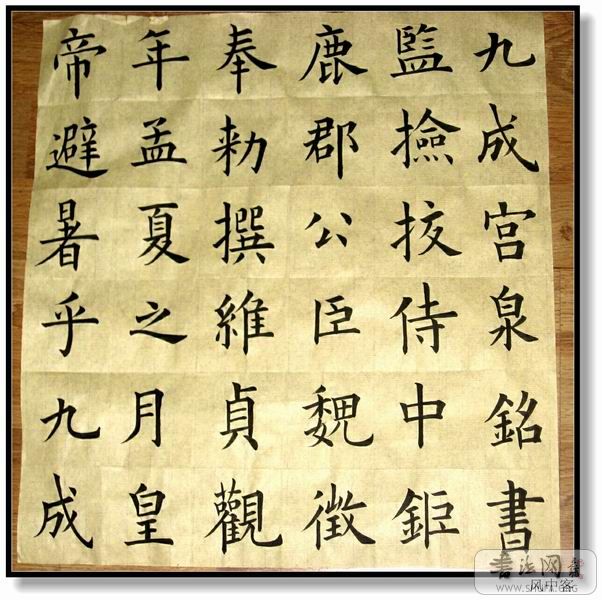 九成宮泉銘書
監撿挍侍中鉅
鹿郡公臣魏徵
奉勅撰維貞觀
年孟夏之月皇
帝避暑乎九成
书法网
风中客